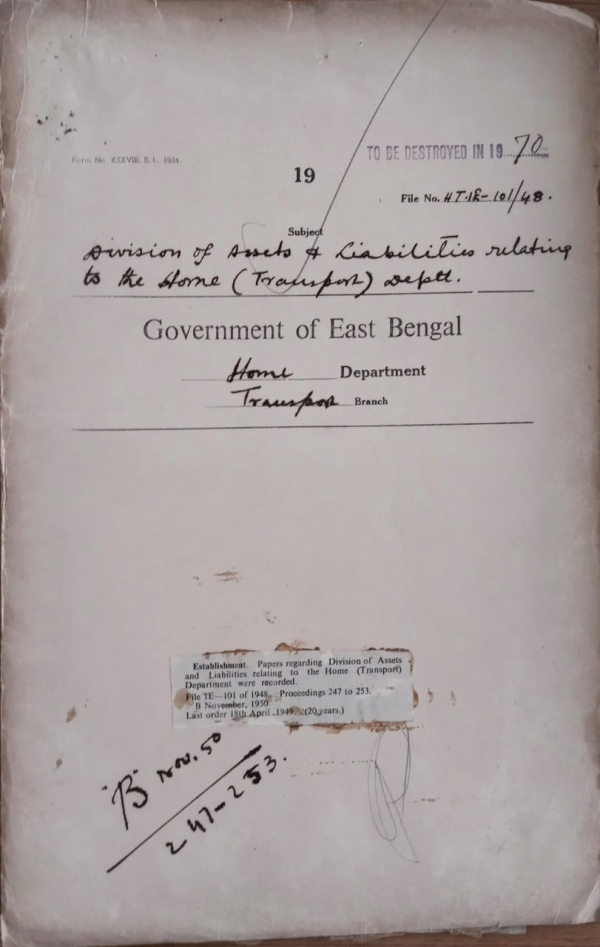 Form No. XXXVIII, B. L. 1934.
TO BE DESTROYED IN 19 70
19
File No. HT.1E-101/48.
Subject
Division of Assets & Liabilities relating
to the Home (Transport) Deptt.
Government of East Bengal
Home Department
Transport Branch
Establishment. Papers regarding Division of Assets
and Liabilities relating to the Home (Transport)
Department were recorded.
File TE—101 of 1948. Proceedings 247 to 253.
B November, 1950
Last order 18th April 1949. (20 years.)
"B" Nov. 50
247-253.